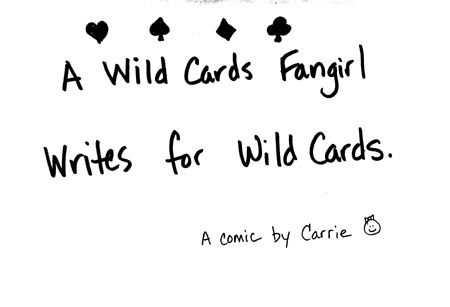 A Wild Cards Fangirl
Writes for Wild Cards.
A comic by Carrie